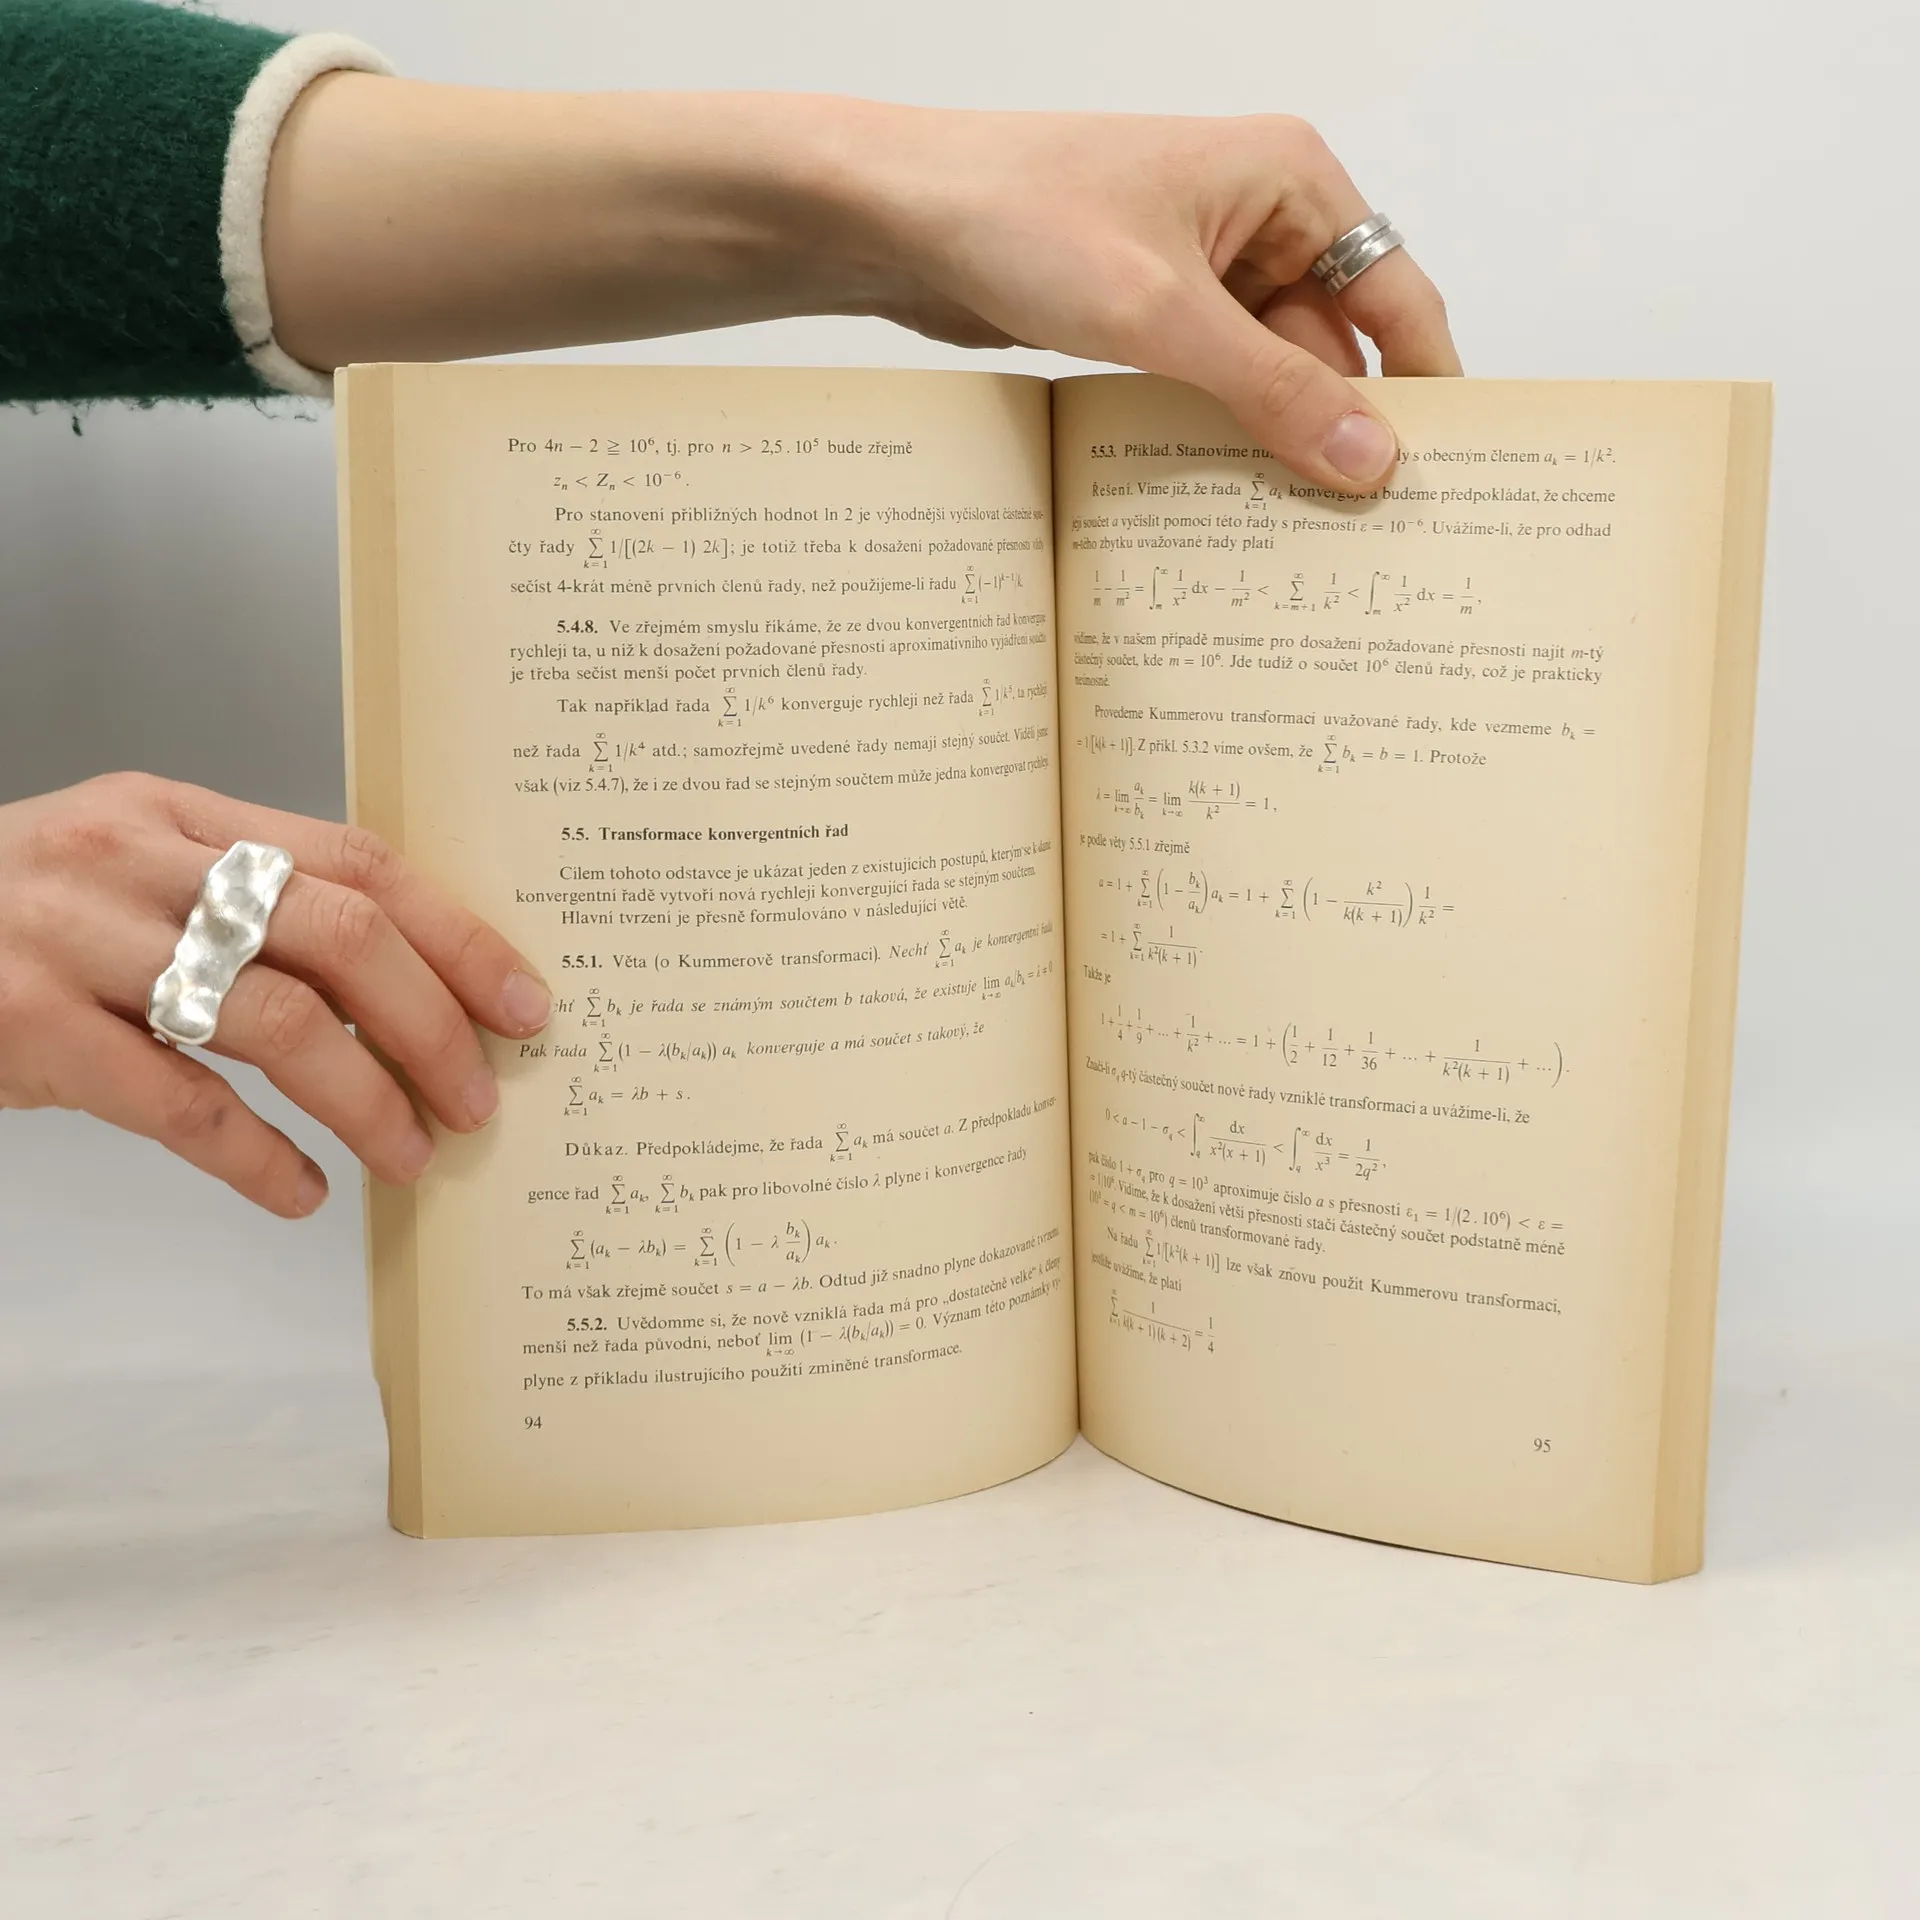 Pro 4n − 2 ≧ 10⁶, tj. pro n > 2,5 . 10⁵ bude zřejmě
zₙ < Zₙ < 10⁻⁶ .
Pro stanovení přibližných hodnot ln 2 je výhodnější vyčíslovat částečné sou-
čty řady ∑_{k=1}^{∞} 1/[(2k − 1) 2k]; je totiž třeba k dosažení požadované přesnosti vždy
sečíst 4-krát méně prvních členů řady, než použijeme-li řadu ∑_{k=1}^{∞} (−1)^{k−1}/k.
5.4.8. Ve zřejmém smyslu říkáme, že ze dvou konvergentních řad konverguje
rychleji ta, u níž k dosažení požadované přesnosti aproximativního vyjádření součtu
je třeba sečíst menší počet prvních členů řady.
Tak například řada ∑_{k=1}^{∞} 1/k⁶ konverguje rychleji než řada ∑_{k=1}^{∞} 1/k⁵, ta rychleji
než řada ∑_{k=1}^{∞} 1/k⁴ atd.; samozřejmě uvedené řady nemají stejný součet. Viděli jsme
však (viz 5.4.7), že i ze dvou řad se stejným součtem může jedna konvergovat rychleji.
5.5. Transformace konvergentních řad
Cílem tohoto odstavce je ukázat jeden z existujících postupů, kterým se k dané
konvergentní řadě vytvoří nová rychleji konvergující řada se stejným součtem.
Hlavní tvrzení je přesně formulováno v následující větě.
5.5.1. Věta (o Kummerově transformaci). Nechť ∑_{k=1}^{∞} aₖ je konvergentní řada
chť ∑_{k=1}^{∞} bₖ je řada se známým součtem b taková, že existuje lim_{k→∞} aₖ/bₖ = λ ≠ 0
Pak řada ∑_{k=1}^{∞} (1 − λ(bₖ/aₖ)) aₖ konverguje a má součet s takový, že
∑_{k=1}^{∞} aₖ = λb + s .
Důkaz. Předpokládejme, že řada ∑_{k=1}^{∞} aₖ má součet a. Z předpokladu konver-
gence řad ∑_{k=1}^{∞} aₖ, ∑_{k=1}^{∞} bₖ pak pro libovolné číslo λ plyne i konvergence řady
∑_{k=1}^{∞} (aₖ − λbₖ) = ∑_{k=1}^{∞} (1 − λ bₖ/aₖ) aₖ .
To má však zřejmě součet s = a − λb. Odtud již snadno plyne dokazované tvrzení.
5.5.2. Uvědomme si, že nově vzniklá řada má pro „dostatečně velké“ k členy
menší než řada původní, neboť lim_{k→∞} (1 − λ(bₖ/aₖ)) = 0. Význam této poznámky vy-
plyne z příkladu ilustrujícího použití zmíněné transformace.
94
5.5.3. Příklad. Stanovíme s obecným členem aₖ = 1/k².
Řešení. Víme již, že řada ∑_{k=1}^{∞} aₖ konverguje a budeme předpokládat, že chceme
její součet a vyčíslit pomocí této řady s přesností ε = 10⁻⁶. Uvážíme-li, že pro odhad
m-tého zbytku uvažované řady platí
1/m − 1/m² = ∫_m^∞ 1/x² dx − 1/m² < ∑_{k=m+1}^{∞} 1/k² < ∫_m^∞ 1/x² dx = 1/m ,
vidíme, že v našem případě musíme pro dosažení požadované přesnosti najít m-tý
částečný součet, kde m = 10⁶. Jde tudíž o součet 10⁶ členů řady, což je prakticky
neúnosné.
Provedeme Kummerovu transformaci uvažované řady, kde vezmeme bₖ =
= 1/[k(k + 1)]. Z příkl. 5.3.2 víme ovšem, že ∑_{k=1}^{∞} bₖ = b = 1. Protože
λ = lim_{k→∞} aₖ/bₖ = lim_{k→∞} k(k + 1)/k² = 1 ,
je podle věty 5.5.1 zřejmě
a = 1 + ∑_{k=1}^{∞} (1 − bₖ/aₖ) aₖ = 1 + ∑_{k=1}^{∞} (1 − k²/(k(k + 1))) 1/k² =
= 1 + ∑_{k=1}^{∞} 1/(k²(k + 1)) .
Takže je
1 + 1/4 + 1/9 + ... + 1/k² + ... = 1 + (1/2 + 1/12 + 1/36 + ... + 1/(k²(k + 1)) + ...) .
Značí-li σ_q q-tý částečný součet nové řady vzniklé transformací a uvážíme-li, že
0 < a − 1 − σ_q < ∫_q^∞ dx/(x²(x + 1)) < ∫_q^∞ dx/x³ = 1/(2q²) ,
pak číslo 1 + σ_q pro q = 10³ aproximuje číslo a s přesností ε₁ = 1/(2 . 10⁶) < ε =
= 1/10⁶. Vidíme, že k dosažení větší přesnosti stačí částečný součet podstatně méně
(10³ = q < m = 10⁶) členů transformované řady.
Na řadu ∑_{k=1}^{∞} 1/[k²(k + 1)] lze však znovu použít Kummerovu transformaci,
jestliže uvážíme, že platí
∑_{k=1}^{∞} 1/(k(k + 1)(k + 2)) = 1/4
95